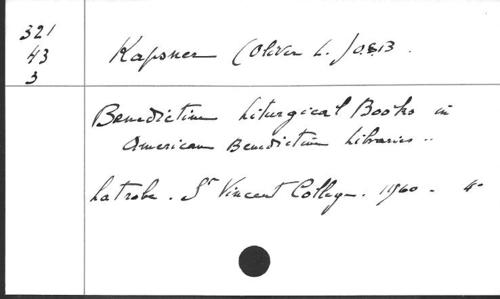 321
43
3
Kapsner (Oliver L.) O.S.B.
Benedictine Liturgical Books in
American Benedictine Libraries..
Latrobe. St Vincent College. 1960. 4°